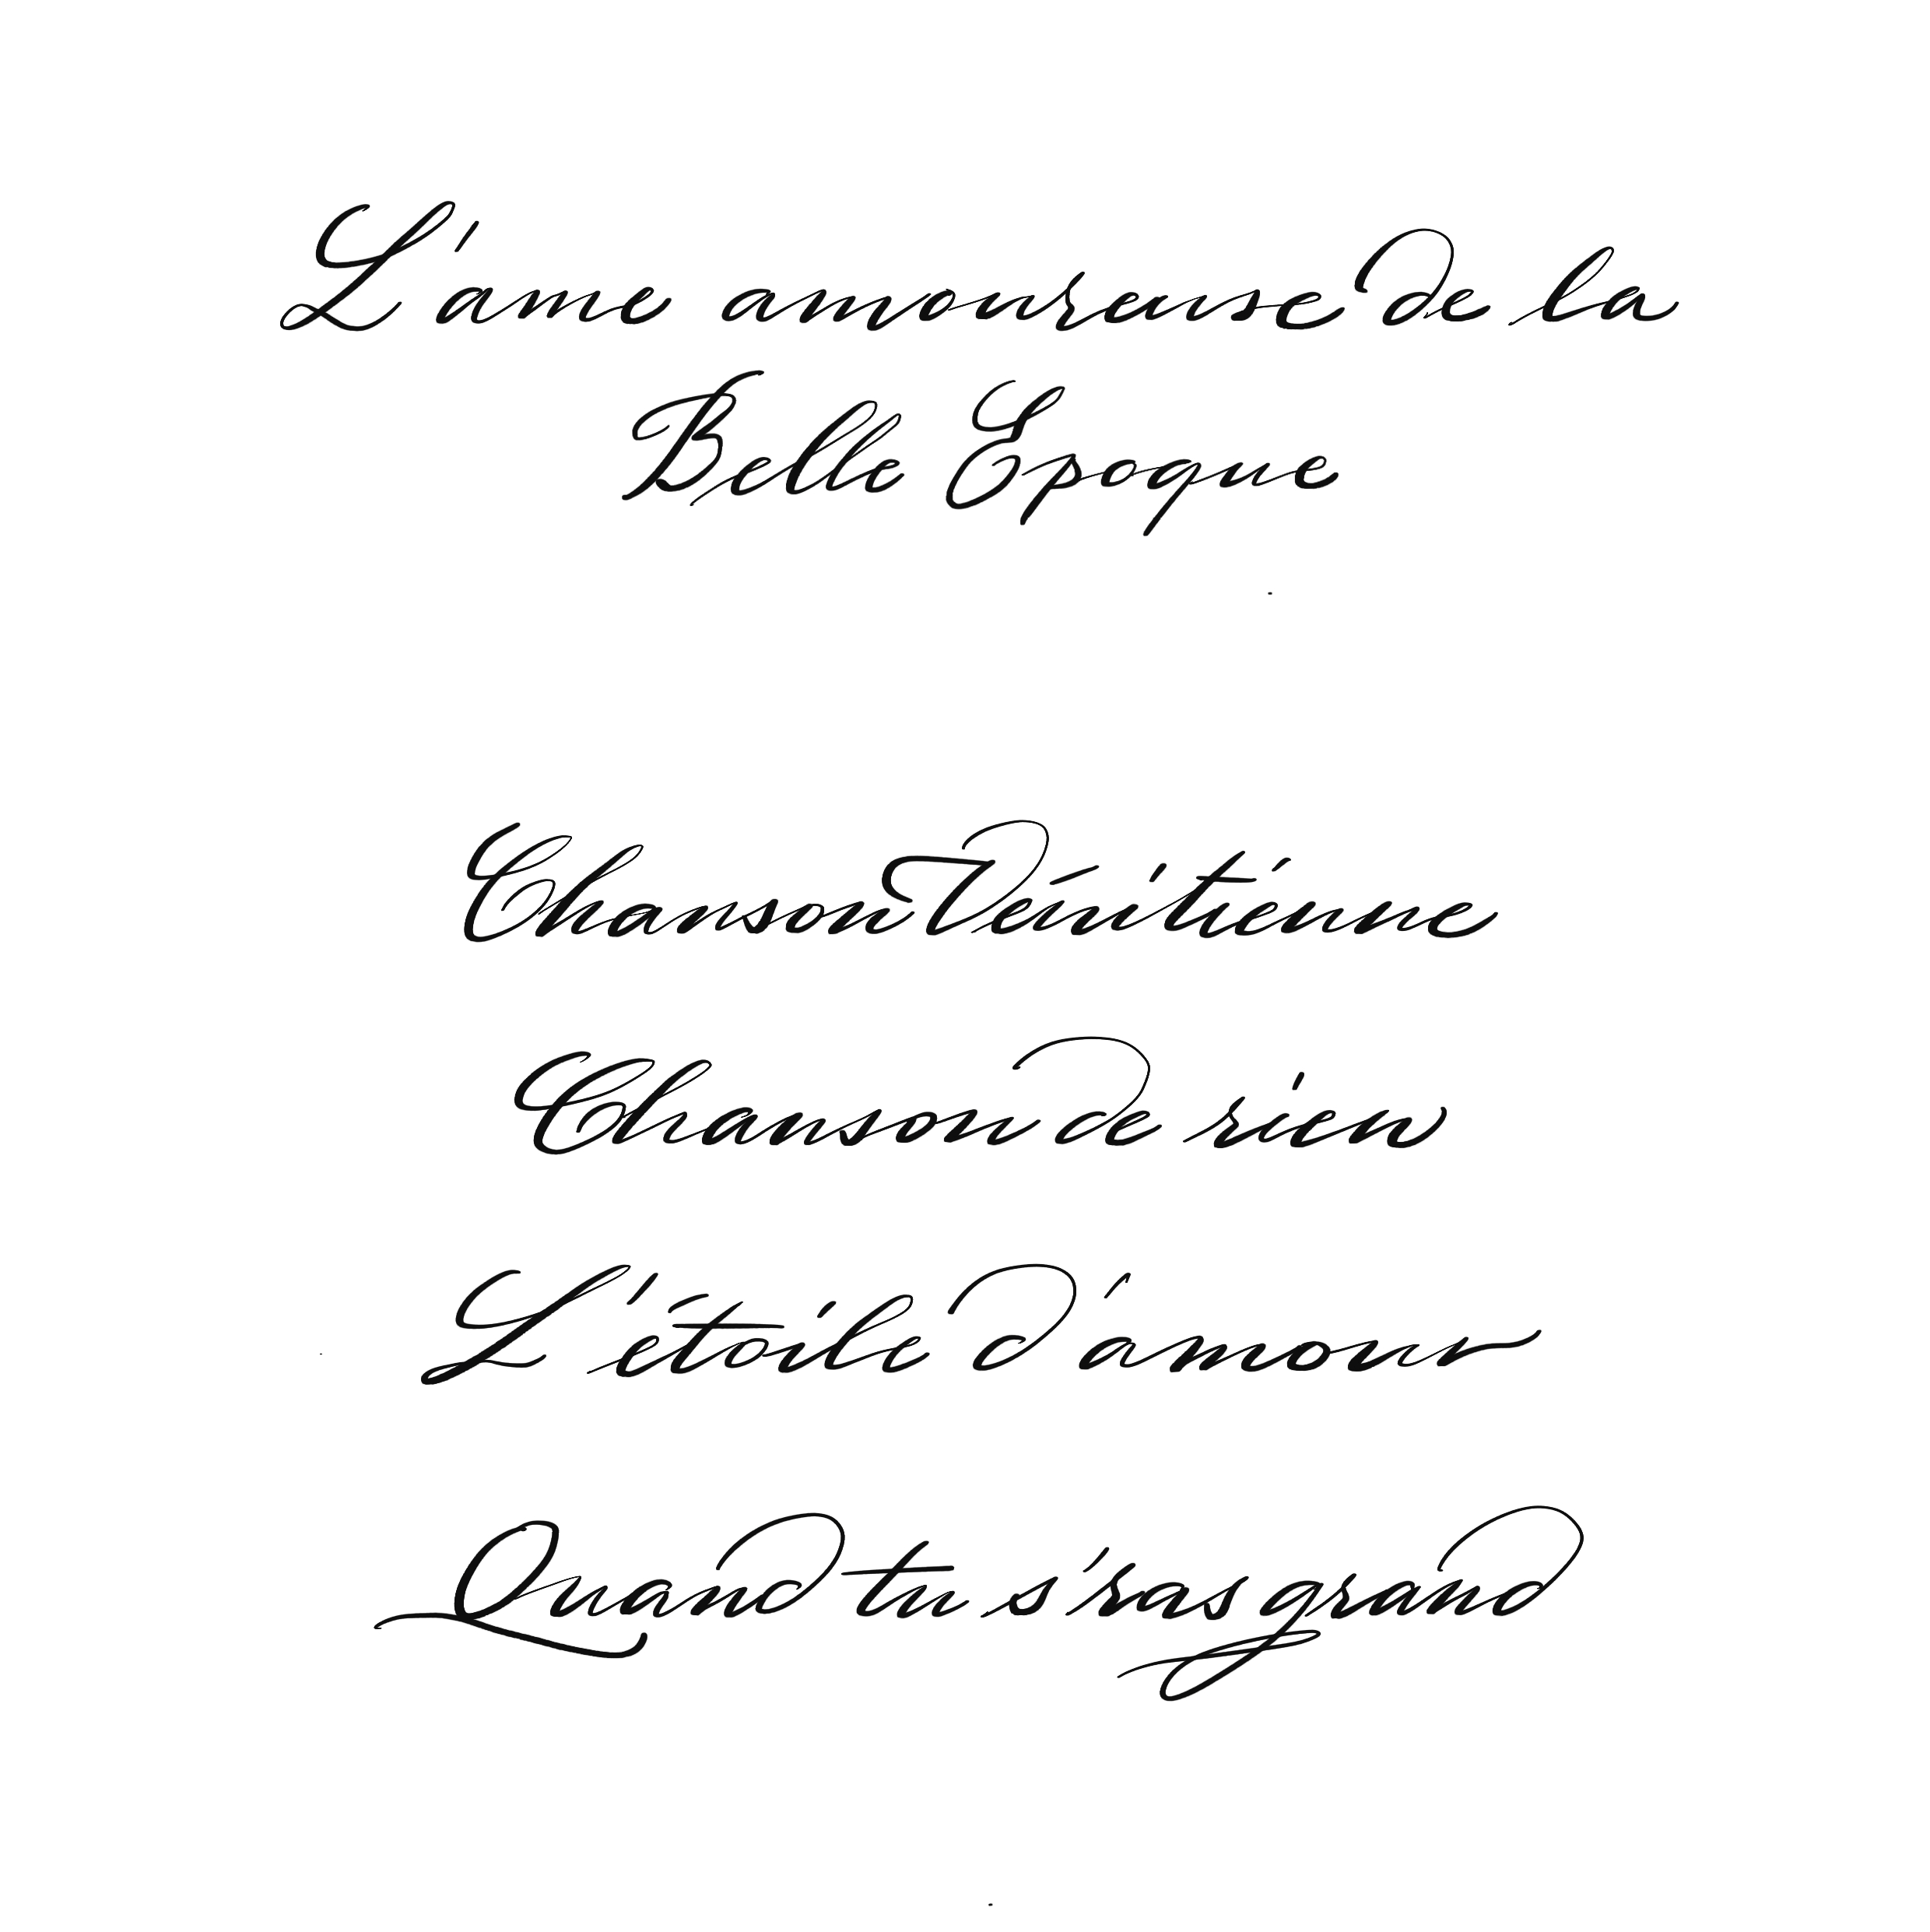 L'ame amoureuse de la
Belle Epoque
Chanson Vénitienne
Chanson de rien
L'étoile d'amour
Quand tu s'ras grand